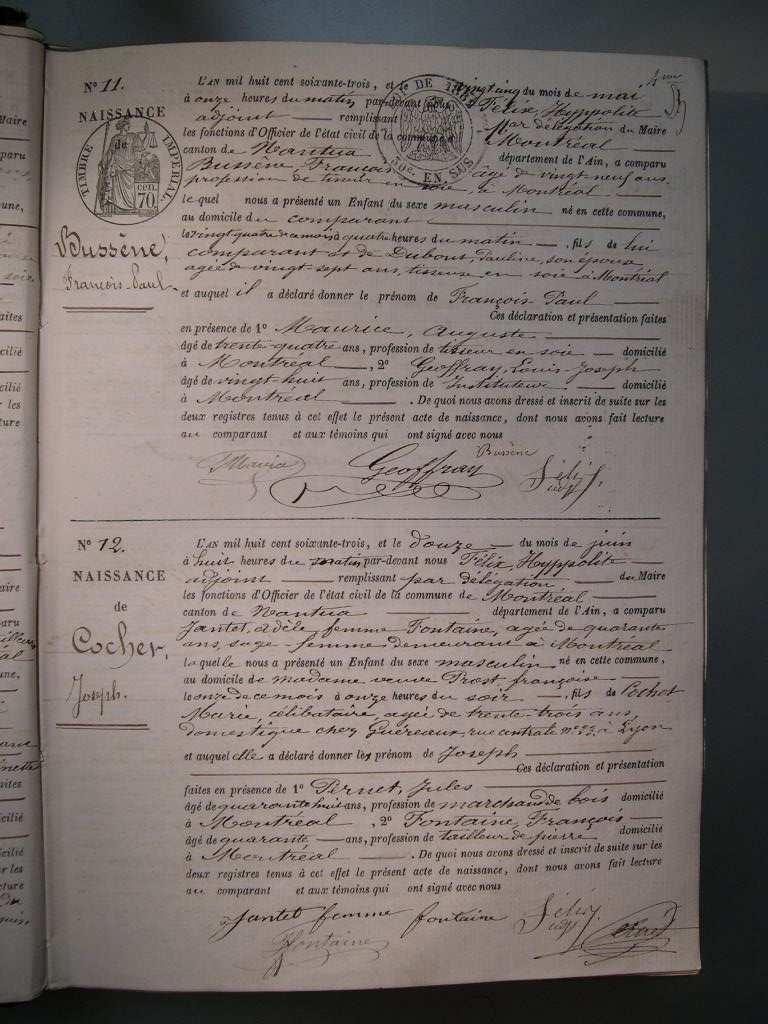 N.° 11.
NAISSANCE
de
TIMBRE IMPÉRIAL.
70 cen.
Bussène,
François-Paul
L'AN mil huit cent soixante-trois, et le vingt cinq du mois de mai
à onze heures du matin par-devant nous Félix, Hyppolite
adjoint remplissant par délégation du Maire
les fonctions d'Officier de l'état civil de la commune de Montréal
canton de Nantua département de l'Ain, a comparu
Bussène François âgé de vingt neuf ans,
profession de tisseur en soie, à Montréal
lequel nous a présenté un Enfant du sexe masculin né en cette commune,
au domicile du comparant
le vingt quatre du mois à quatre heures du matin, fils de lui
comparant et de Dubout, Pauline, son épouse
agée de vingt sept ans, tisseuse en soie à Montréal
et auquel il a déclaré donner le prénom de François Paul
Ces déclaration et présentation faites
en présence de 1° Maurice, Auguste
âgé de trente quatre ans, profession de tisseur en soie domicilié
à Montréal, 2° Geoffray, Louis-Joseph
âgé de vingt huit ans, profession de Instituteur domicilié
à Montréal. De quoi nous avons dressé et inscrit de suite sur les
deux registres tenus à cet effet le présent acte de naissance, dont nous avons fait lecture
au comparant et aux témoins qui ont signé avec nous
Bussène
Geoffray
Félix
N.° 12.
NAISSANCE
de
Cochet,
Joseph.
L'AN mil huit cent soixante-trois, et le douze du mois de juin
à huit heures du matin par-devant nous Félix, Hyppolite
adjoint remplissant par délégation du Maire
les fonctions d'Officier de l'état civil de la commune de Montréal
canton de Nantua département de l'Ain, a comparu
Jantet, Adèle, femme Fontaine, agée de quarante
ans, sage-femme demeurant à Montréal
laquelle nous a présenté un Enfant du sexe masculin né en cette commune,
au domicile de madame veuve Prost françoise
le onze de ce mois à onze heures du soir, fils de Cochet
Marie, célibataire, agée de trente-trois ans
domestique chez Guéreaux, rue centrale n° 23, à Lyon
et auquel elle a déclaré donner les prénom de Joseph
Ces déclaration et présentation
faites en présence de 1° Pernet, Jules
âgé de quarante huit ans, profession de marchand de bois domicilié
à Montréal, 2° Fontaine, François
âgé de quarante ans, profession de tailleur de pierre domicilié
à Montréal. De quoi nous avons dressé et inscrit de suite sur les
deux registres tenus à cet effet le présent acte de naissance, dont nous avons fait lecture
au comparant et aux témoins qui ont signé avec nous
Jantet femme fontaine Félix
Fontaine